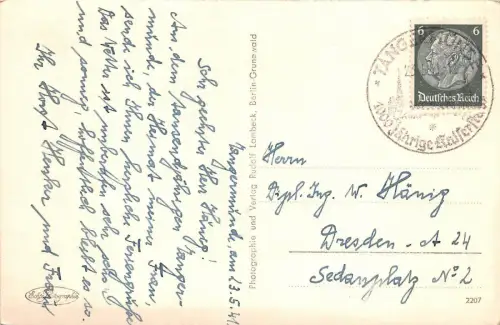 Tangermünde, am 13.5.41
Sehr geehrter Herr Hänig!
Aus dem tausendjährigen Tanger-
münde, der Heimat meiner Frau,
sende ich Ihnen herzliche Feriengrüße
Das Wetter ist weiterhin sehr schön
und sonnig, hoffentlich bleibt es so.
Ihr Horst Henker und Frau
Photographie und Verlag Rudolf Lambeck, Berlin-Grunewald
TANGERMÜNDE
1000jährige Kaiserstadt
6 6
Deutsches Reich
Herrn
Dipl. Ing. W. Hänig
Dresden - A 24
Sedanplatz No 2
2207